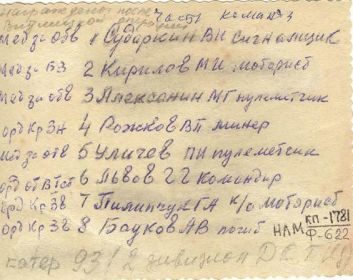 часть команды
Мед за обв 1 Сударкин ВН Сигнальщик
Мед за БЗ 2 Кирилов МИ моторист
Мед за обв 3 Алексанин МГ пулеметчик
орд Кр Зн 4 Рожков ВП минер
Мед за обв 5 Уличев ПИ пулеметчик
орд от В I ст 6 Львов ГГ Командир
орд Кр Зв 7 Пилипчук ГА к/о мотористо
орд Кр Зв 8 Бауков АВ погиб
НЛМ КП-1781
Ф-622
катер 93/2 дивизион